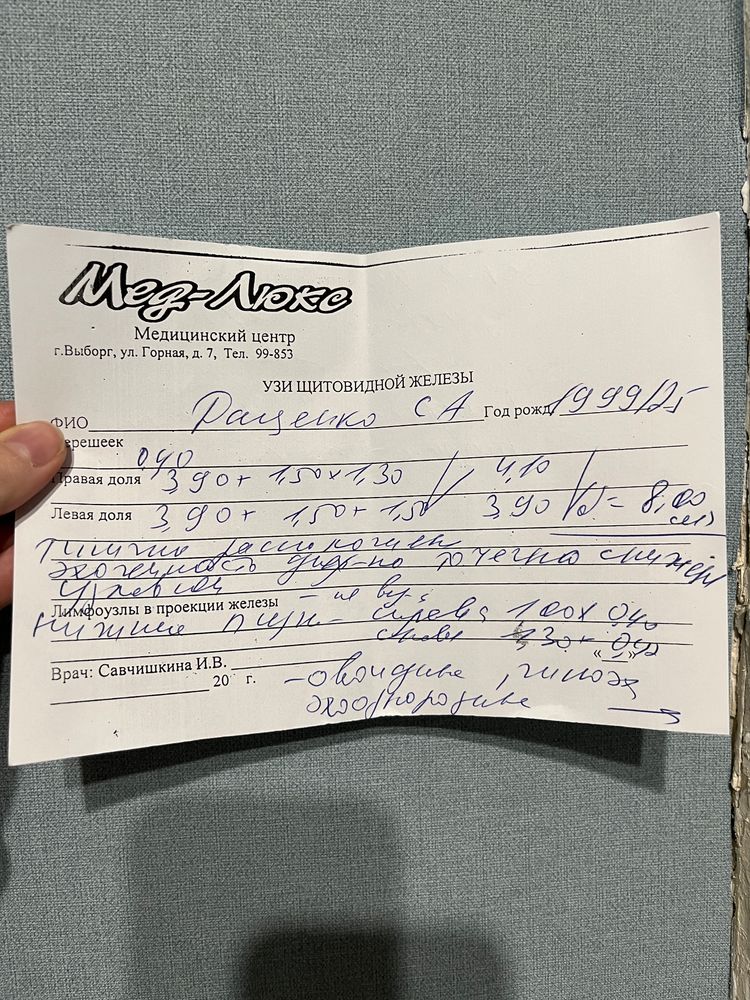 Мед-Люкс
Медицинский центр
г.Выборг, ул. Горная, д. 7, Тел. 99-853
УЗИ ЩИТОВИДНОЙ ЖЕЛЕЗЫ
ФИО Ращенко С А Год рожд 1999/25
Перешеек 0,40
Правая доля 3,90 + 1,50 x 1,30 / 4,10
Левая доля 3,90 + 1,50 + 1,50 3,90 = 8,00
типично расположен
эхогенность точечно снижен
Узлов
Лимфоузлы в проекции железы – не
нижние слева 1,00 x 0,40
справа 1,30 +
Врач: Савчишкина И.В. « »
20 г. – овоидные,
эхооднородные